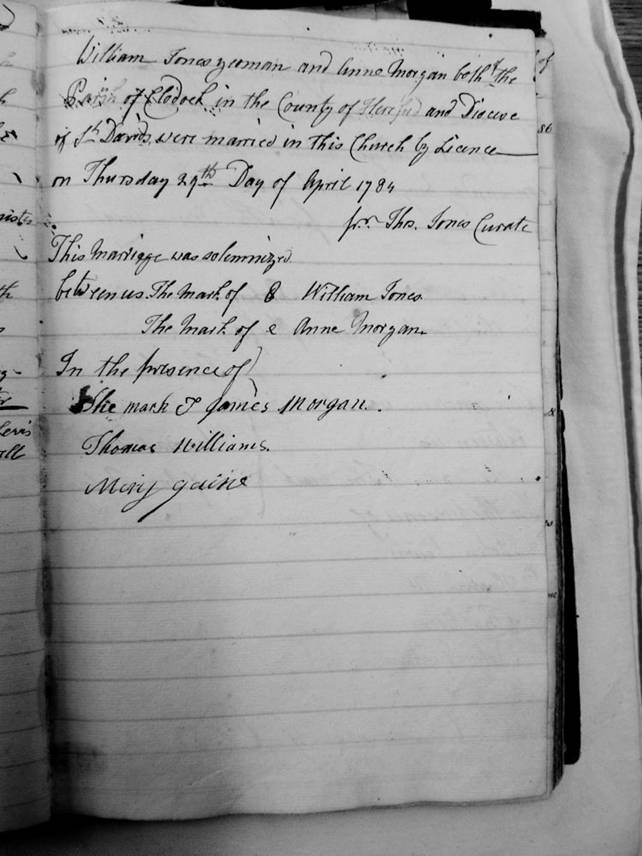 William Jones yeoman and Anne Morgan both of the
Parish of Clodock in the County of Hereford and Diocese
of St. Davids were married in this Church by Licence
on Thursday 29th Day of April 1784
pr. Thos. Jones Curate
This Marriage was solemnized
between us The Mark of 8 William Jones
The Mark of e Anne Morgan.
In the presence of
The mark J James Morgan.
Thomas Williams.
Mary